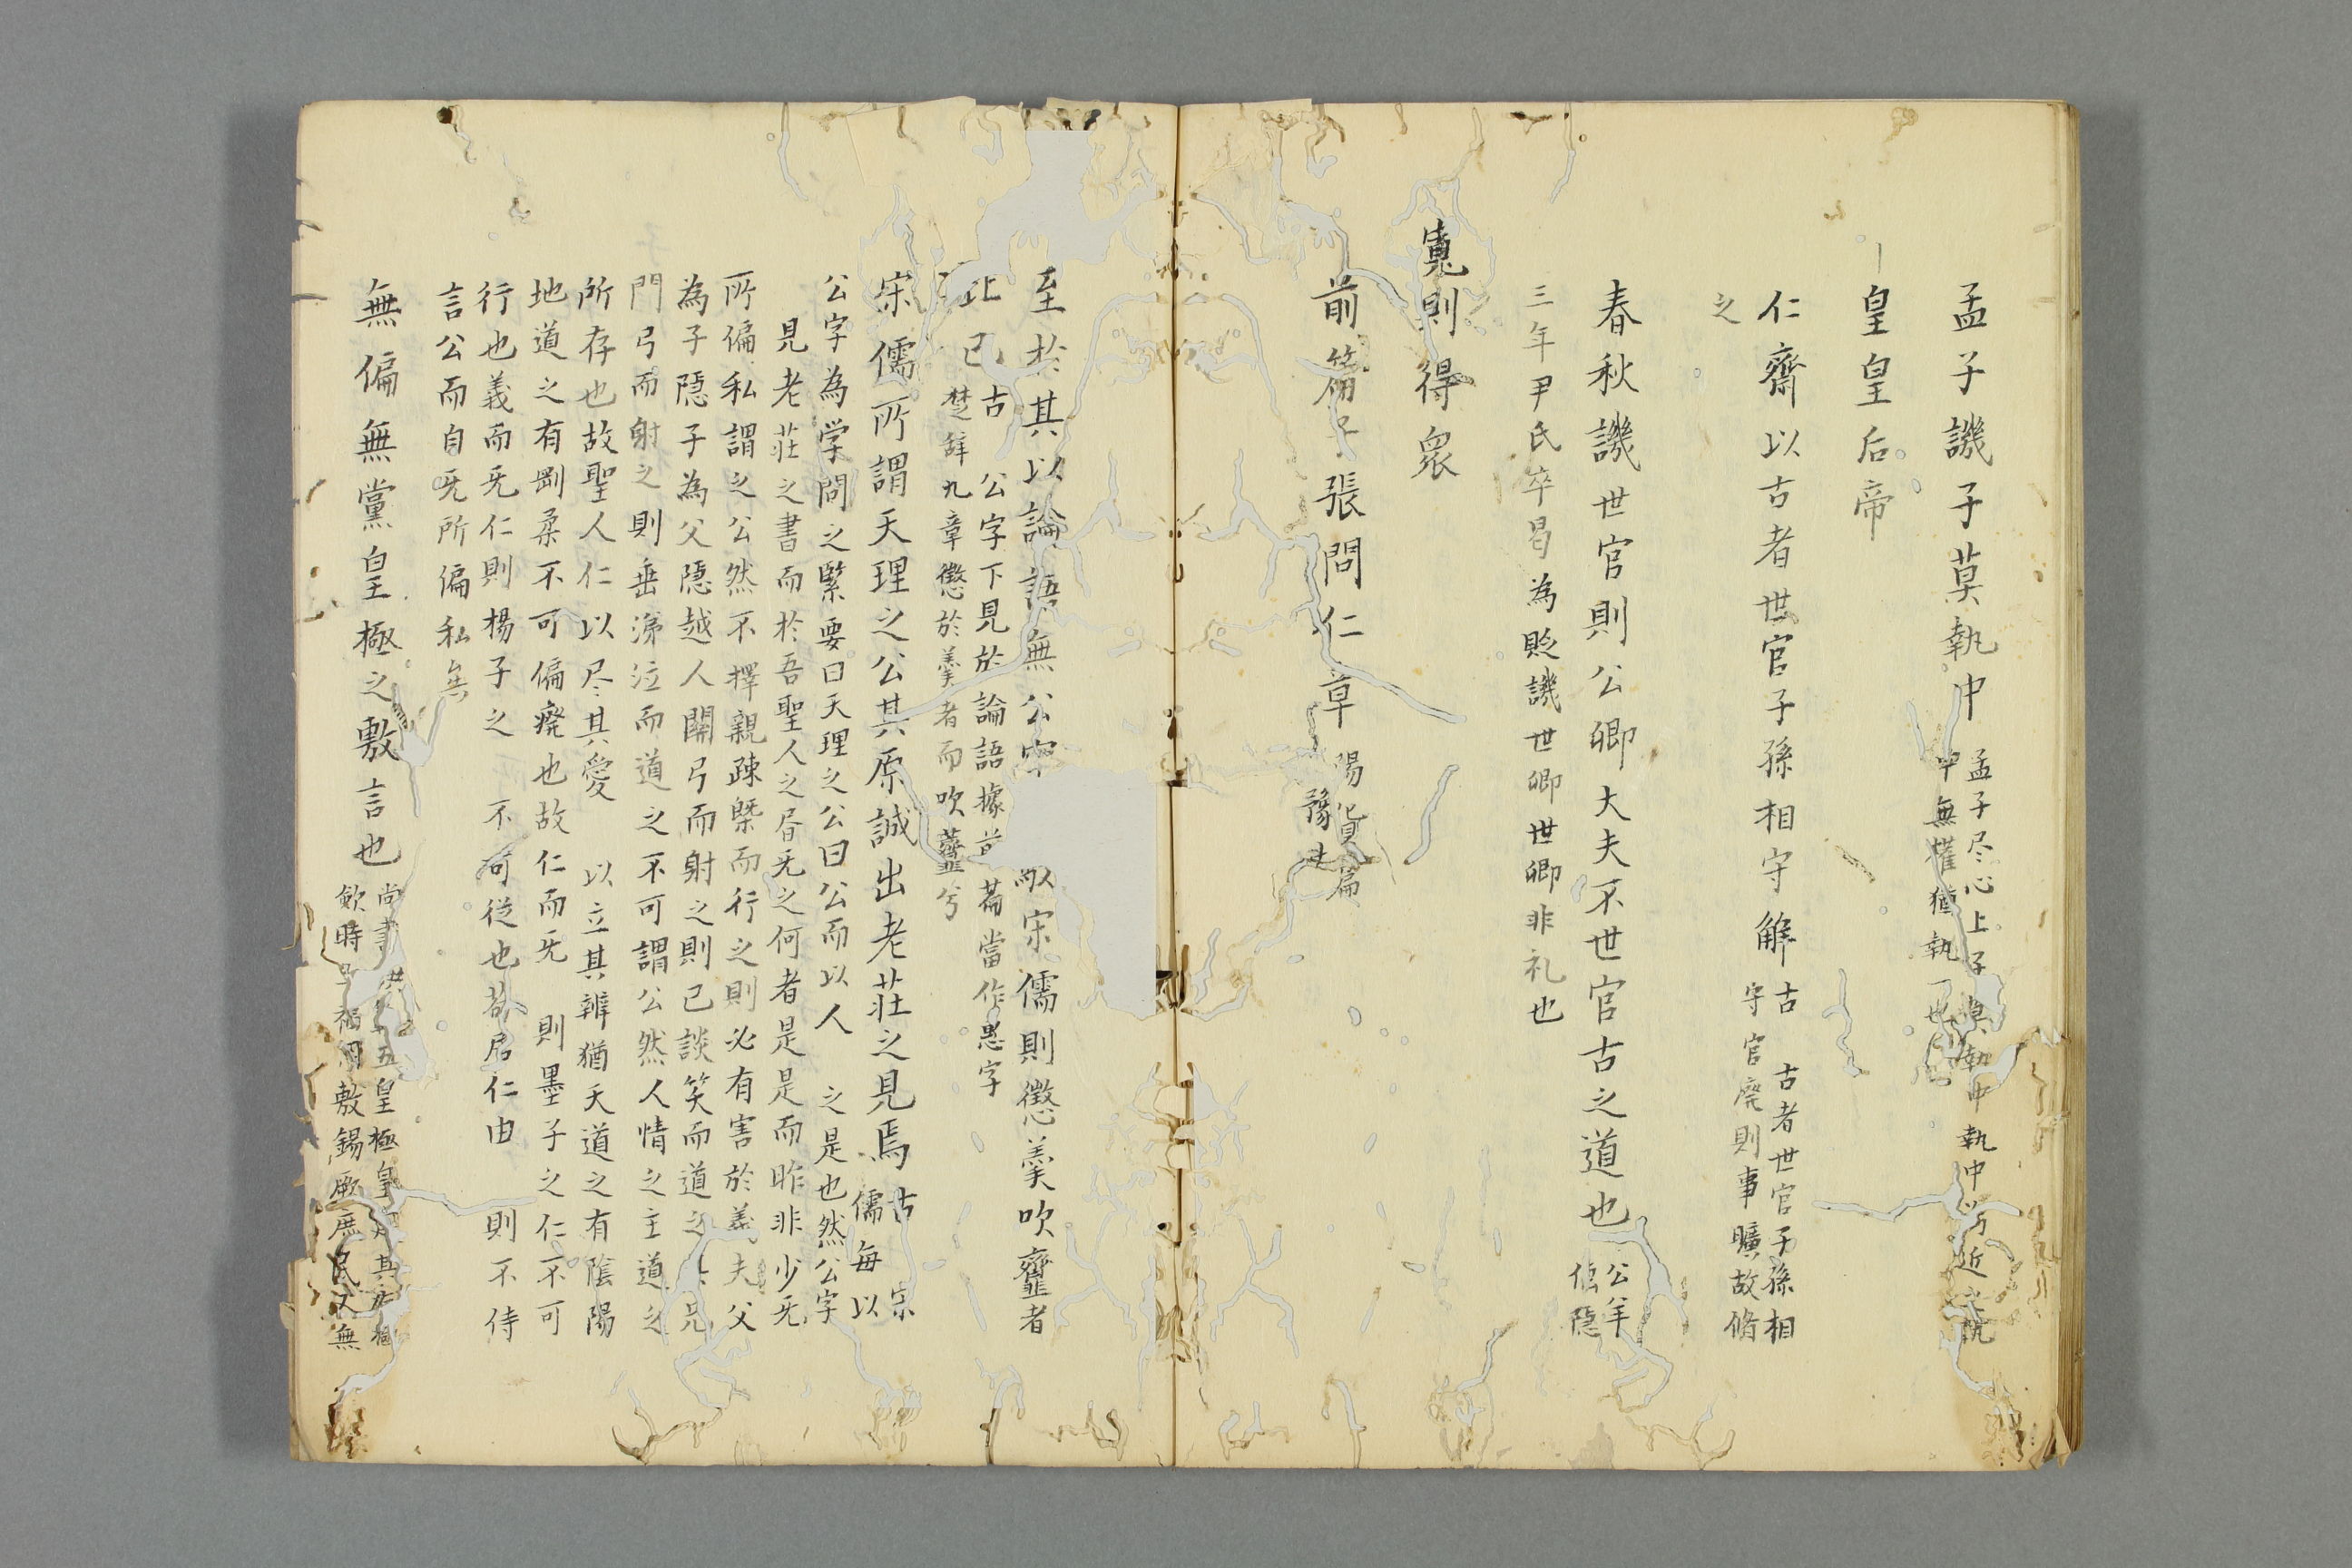 孟子譏子莫執中 孟子尽心上子莫執中執中為近之執
中無権猶執一也
皇皇后帝
仁齋以古者世官子孫相守解 古 古者世官子孫相
守官廃則事曠故脩
之
春秋譏世官則公卿大夫不世官古之道也 公羊
傳隠
三年尹氏卒曷為貶譏世卿世卿非礼也
寛則得衆
前篇子張問仁章 陽貨篇
至於其以論語無公字 宋儒則懲羹吹韲者
此已 古 公字下見於論語據前篇當作恩字
楚辞九章懲於羹者而吹韲兮
宋儒所謂天理之公其原誠出老荘之見焉 古 宗
儒毎以
公字為学問之緊要曰天理之公曰公而以人 之是也然公字
見老荘之書而於吾聖人之書无之何者是是而昨非少无
所偏私謂之公然不擇親疎槩而行之則必有害於義夫父
為子隠子為父隠越人關弓而射之則己談笑而道之 兄
門弓而射之則垂涕泣而道之不可謂公然人情之主道之
所存也故聖人仁以尽其愛 以立其辨猶天道之有陰陽
地道之有剛柔不可偏癈也故仁而无 則墨子之仁不可
行也義而无仁則楊子之 不可從也若居仁由 則不待
言公而自无所偏私矣
無偏無黨皇極之敷言也 尚書洪 五皇極皇建其有極
歛時五福用敷錫厥庶民又無